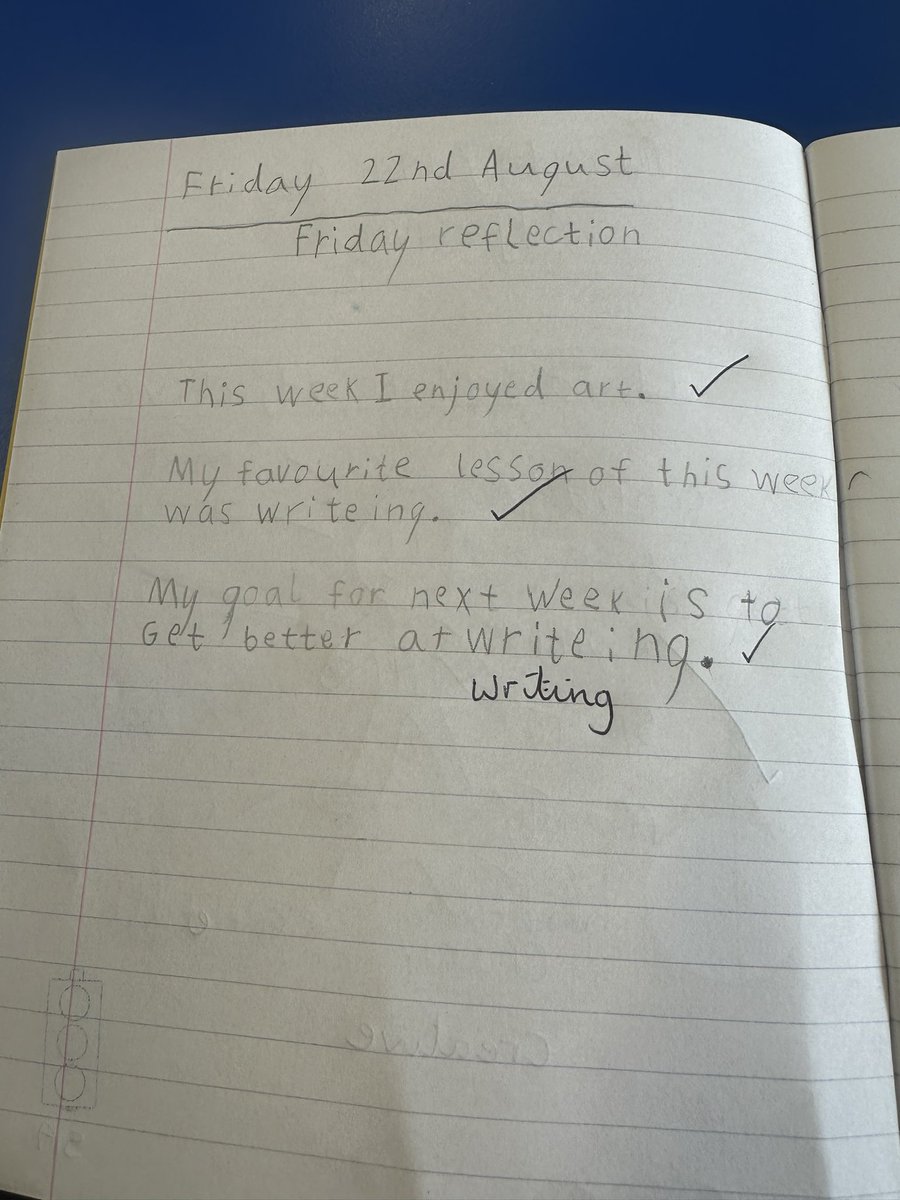 Friday 22nd August
Friday reflection
This week I enjoyed art.
My favourite lesson of this week
was writeing.
My goal for next week is to
Get better at writeing.
writing
Creative